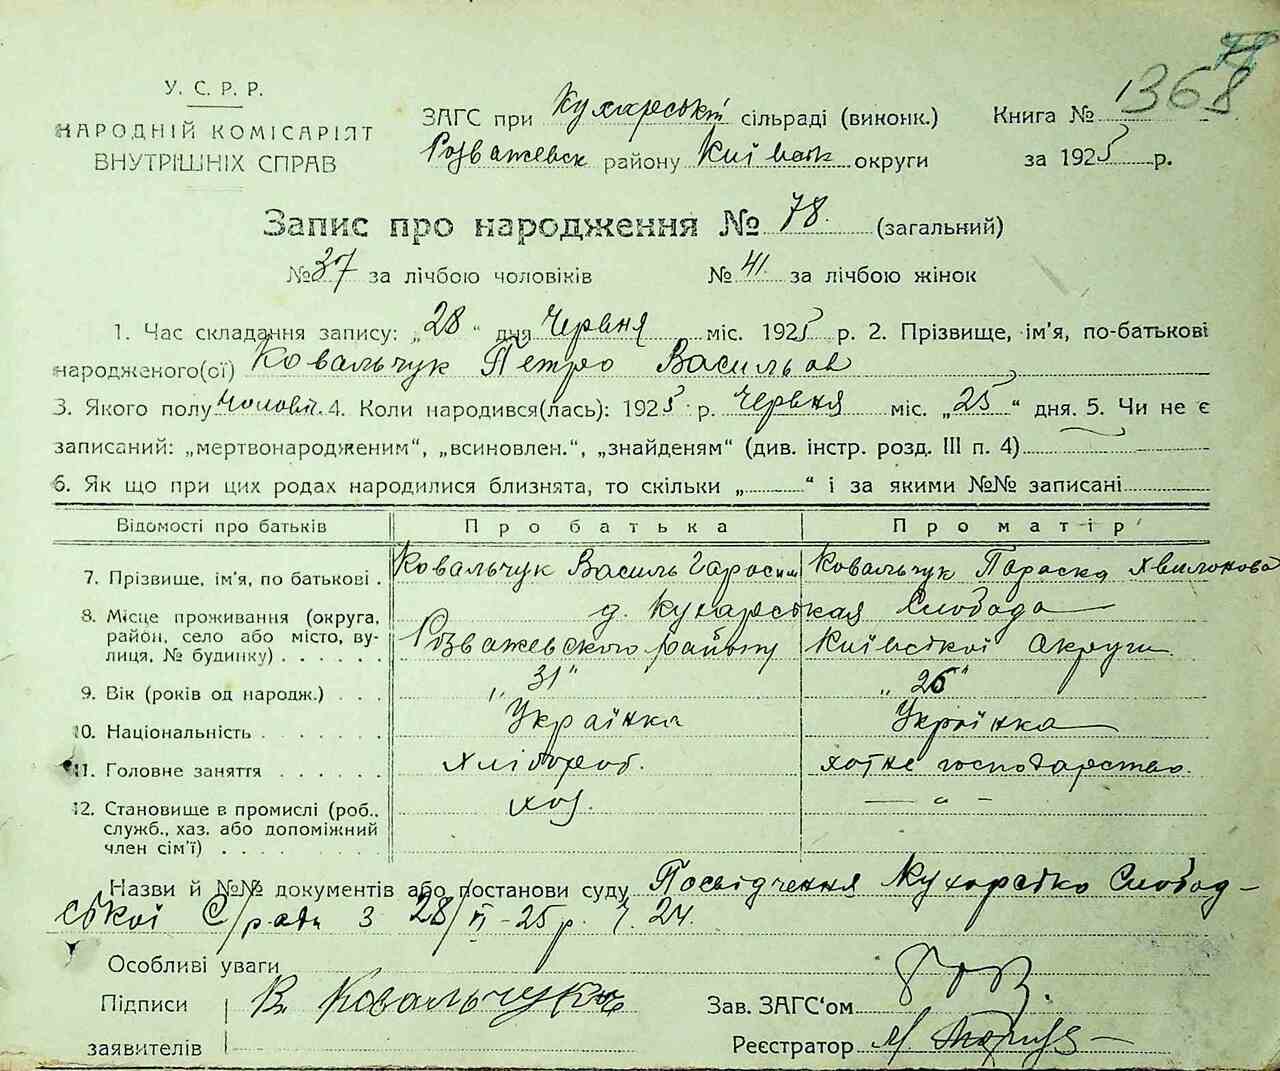 78
1368
У. С. Р. Р.
НАРОДНІЙ КОМІСАРІЯТ
ВНУТРІШНІХ СПРАВ
ЗАГС при Кухарські сільраді (виконк.)
Розважевск району Київськ округи
Книга №
за 1925 р.
Запис про народження № 78. (загальний)
№ 37 за лічбою чоловіків № 41. за лічбою жінок
1. Час складання запису: „28“ дня Червня міс. 1925 р. 2. Прізвище, ім'я, по-батькові
народженого(ої) Ковальчук Петро Васильов
3. Якого полу чоловіч. 4. Коли народився(лась): 1925 р. Червня міс. „25“ дня. 5. Чи не є
записаний: „мертвонародженим“, „всиновлен.“, „знайденям“ (див. інстр. розд. III п. 4)
6. Як що при цих родах народилися близнята, то скільки „ “ і за якими №№ записані
Відомості про батьків Про батька Про матір
7. Прізвище, ім'я, по батькові . Ковальчук Василь Гарасим Ковальчук Параска Хвилонова
8. Місце проживання (округа, д. Кухарськая Слобода
район, село або місто, ву- Розважевского району Київської Округи
лиця, № будинку) . . . . . .
9. Вік (років од народж.) . . . „31“ „26“
10. Національність . . . . . . . Українка Українка
11. Головне заняття . . . . . . Хлібороб. хатнє господарство.
12. Становище в промислі (роб., хоз. — „ —
служб., хаз. або допоміжний
член сім'ї) . . . . . . . . .
Назви й №№ документів або постанови суду Посвідчення Кухарсько Слобод-
ської С/ради з 28/VI-25 р. ч. 24.
Особливі уваги
Підписи В. Ковальчук Зав. ЗАГС'ом
заявителів Реєстратор М.